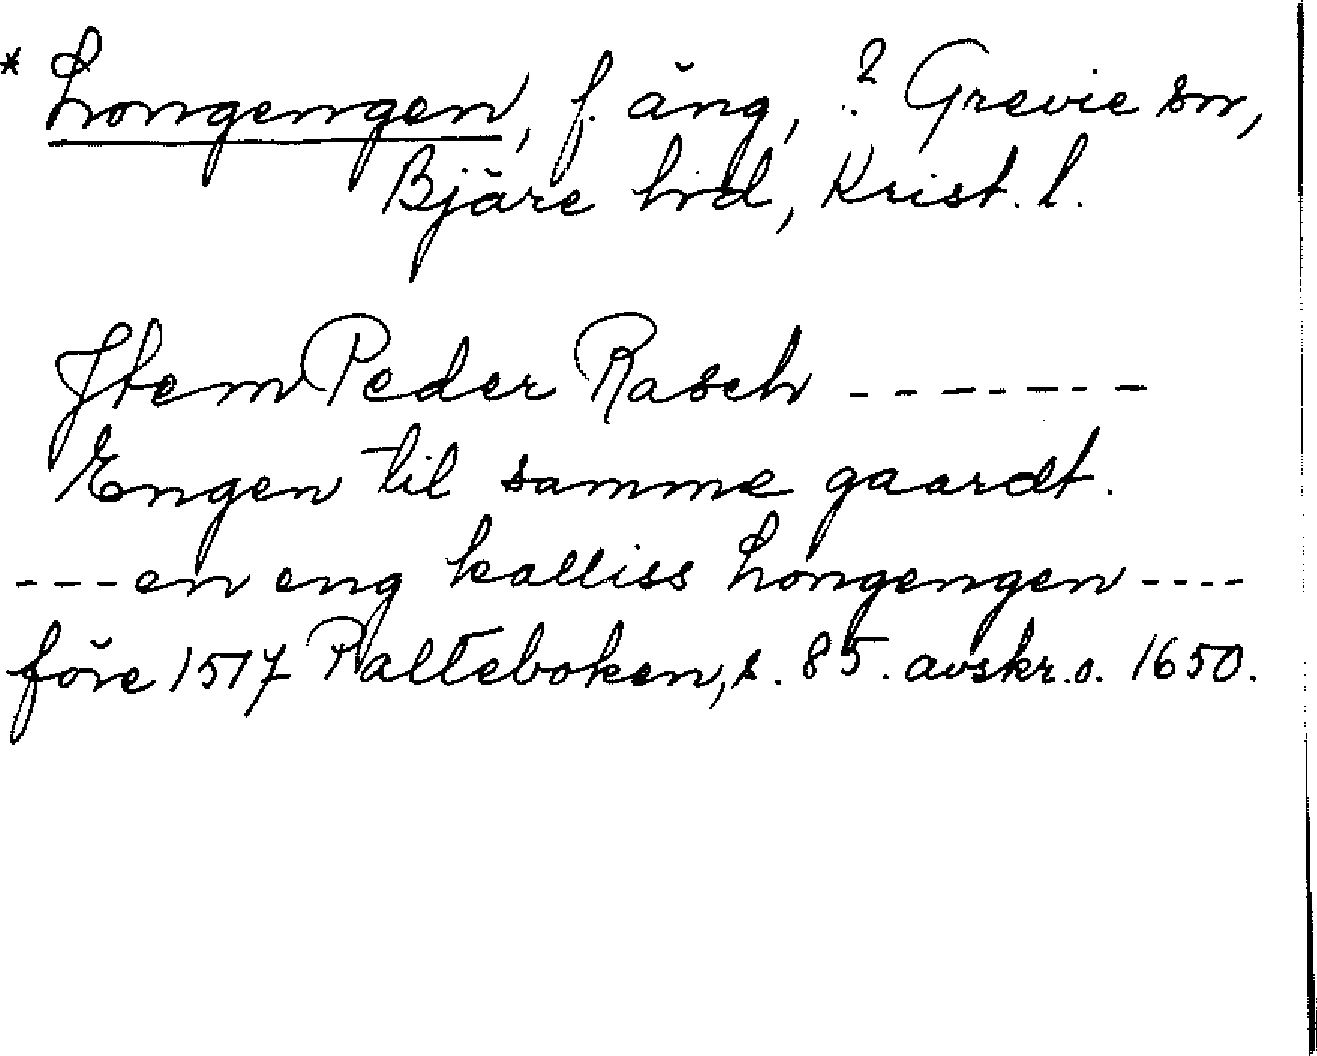 * Longengen, f. äng, ? Grevie sn,
Bjäre hd, Krist. l.
Jtem Peder Rasch - - - - - - -
Engen til samme gaardt.
- - - en eng kalliss Longengen - - - -
före 1517 Palteboken, s. 85. avskr. o. 1650.